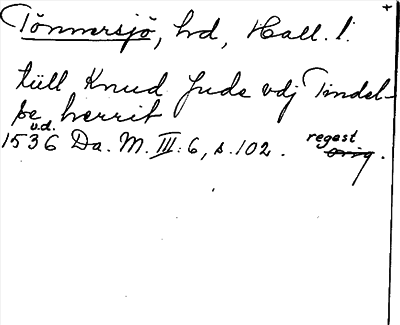 Tönnersjö, hd, Hall. l.
tiill Knud Jude vdj Tindel-
se herrit
u.d.
1536 Da. M. III: 6, s. 102. regest
orig.